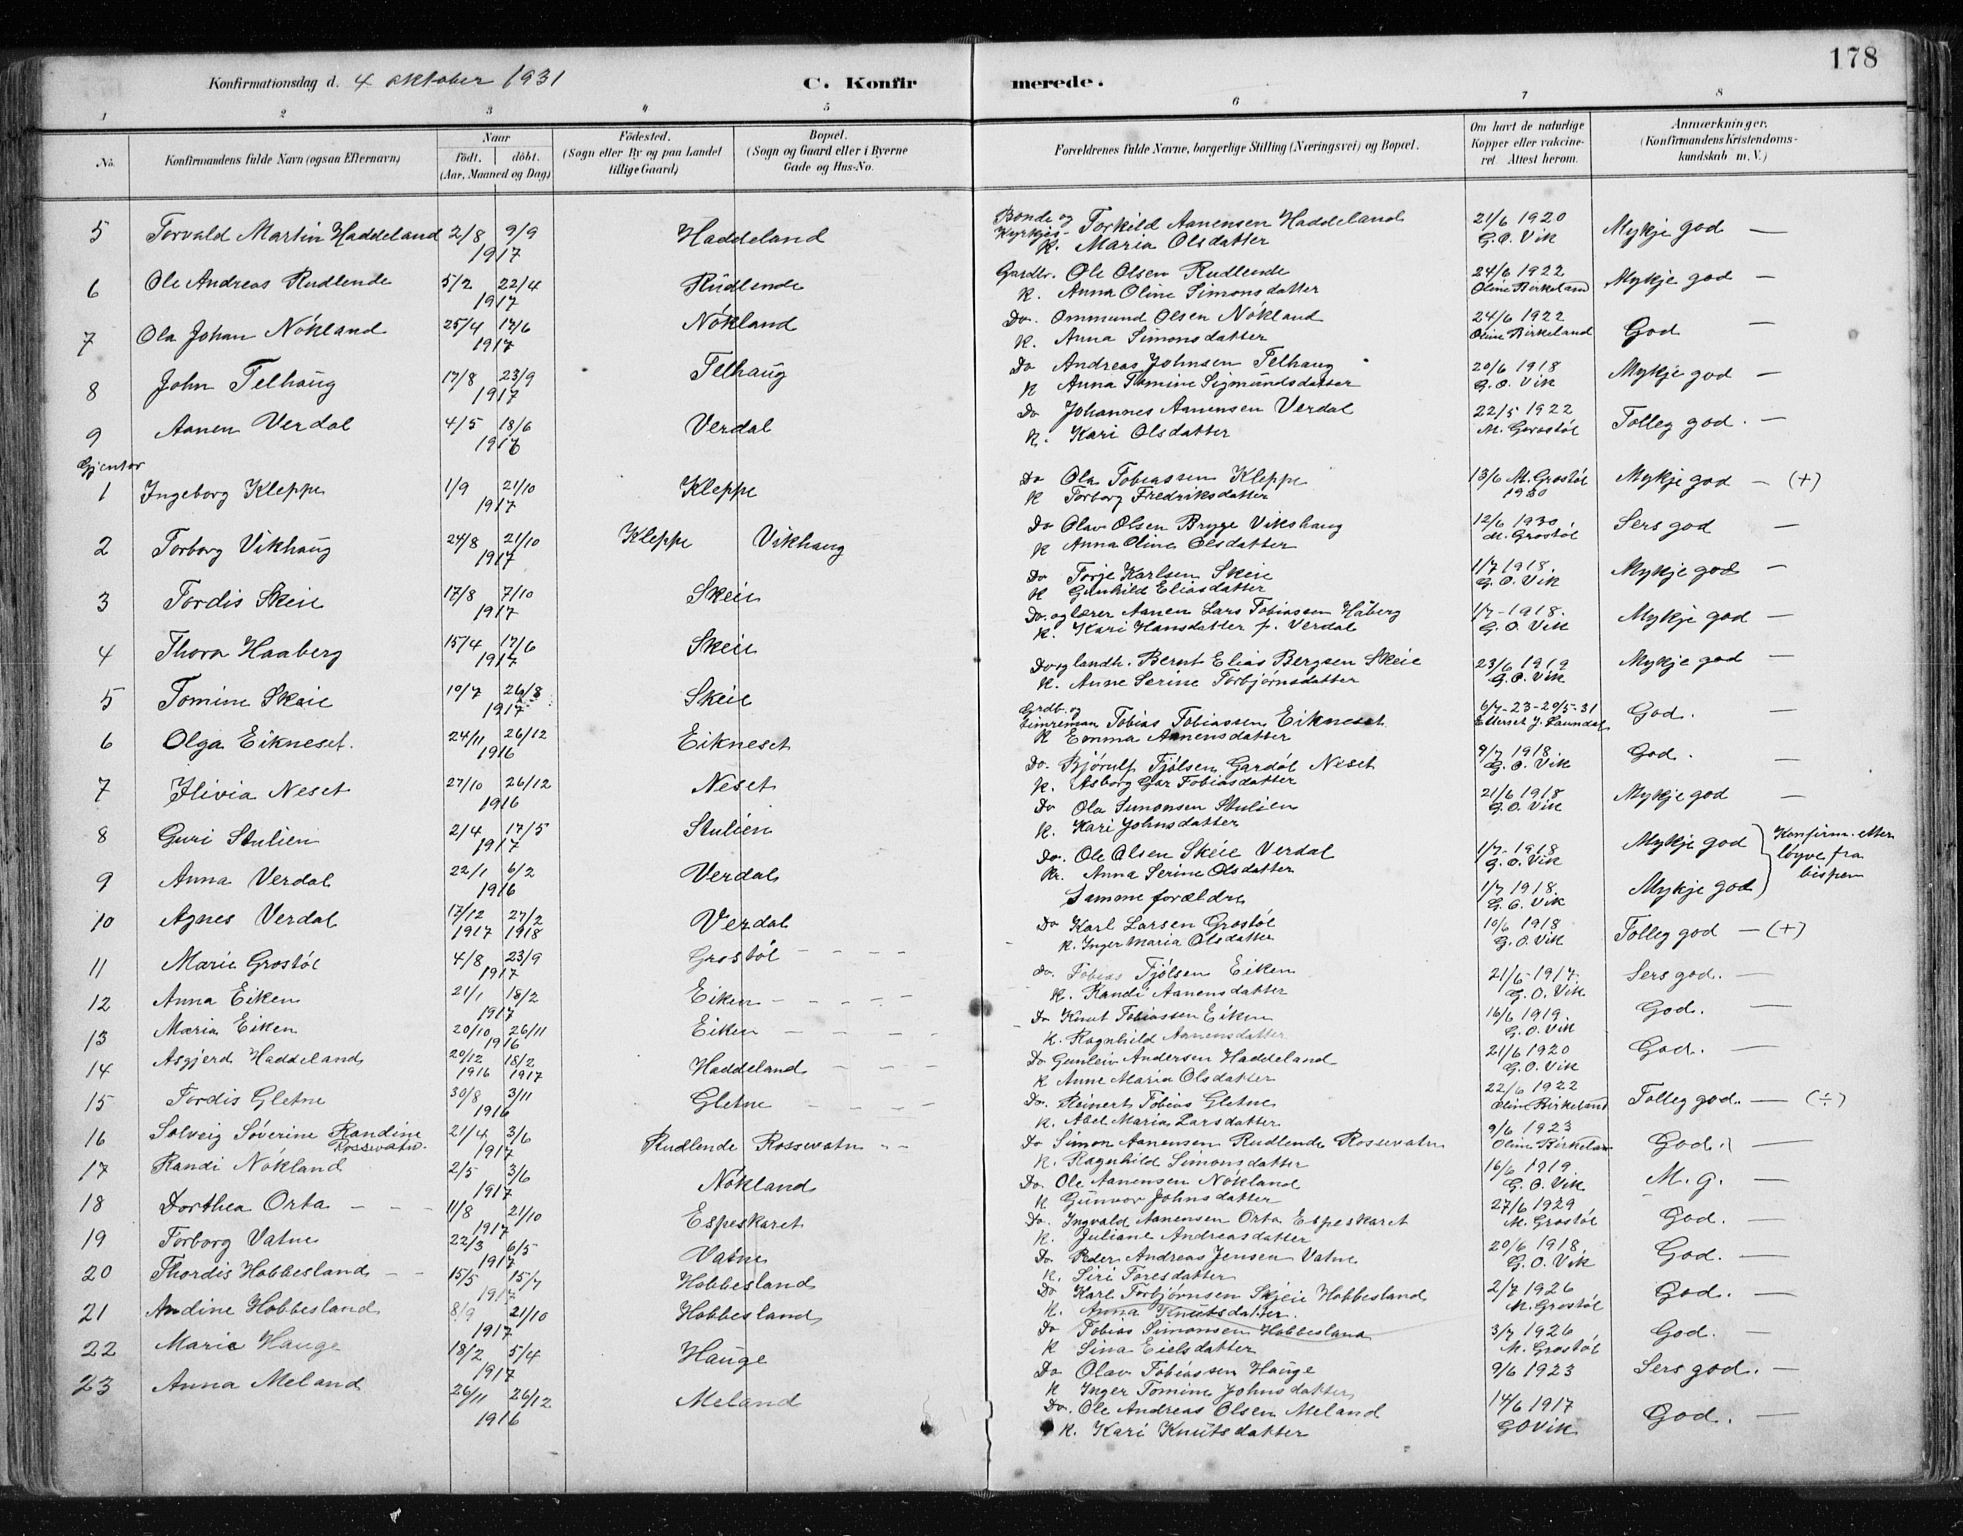 178
Konfirmationsdag d. 4 oktober 1931 C. Konfirmerede.
1 2 3 4 5 6 7 8
No. Konfirmandens fulde Navn (ogsaa Efternavn) Naar født. døbt. (Aar, Maaned og Dag) Fødested. (Sogn eller By og paa Landet tillige Gaard) Bopæl. (Sogn og Gaard eller i Byerne Gade og Hus-No. Forældrenes fulde Navne, borgerlige Stilling (Næringsvei) og Bopæl. Om havt de naturlige Kopper eller vakcineret. Attest herom. Anmærkninger. (Konfirmandens Kristendomskundskab m. V.)
5 Torvald Martin Haddeland 2/8 9/9 1917 Haddeland Bonde og Kyrkjes- Torkild Aanensen Haddeland K. Maria Olsdatter 21/6 1920 G.O. Vik Mykje god —
6 Ole Andreas Rudlende 5/2 22/4 1917 Rudlende Gardbr. Ole Olsen Rudlende K. Anna Oline Simonsdatter 24/6 1922 Oline Birkeland Mykje god —
7 Ola Johan Nökland 25/4 17/6 1917 Nökland Do. Ommund Olsen Nökland K. Anna Simonsdatter 24/6 1922 Oline Birkeland God —
8 John Telhaug 17/8 23/9 1917 Telhaug Do Andreas Johnsen Telhaug K Anna Tomine Sigmundsdatter 20/6 1918 G.O. Vik Mykje god —
9 Aanen Verdal 4/5 18/6 1916 Verdal Do Johannes Aanensen Verdal K. Kari Olsdatter 22/5 1922 M. Grostøl Tolleg god. —
Gjentor
1 Ingeborg Kleppe 1/9 21/10 1917 Kleppe Do Ola Tobiassen Kleppe K Torborg Fredriksdatter 13/6 M. Grostøl 1930 Mykje god — (+)
2 Torborg Vikhaug 24/8 21/10 1917 Kleppe Vikhaug Do Olav Olsen Bryge Vikshaug K Anna Oline Olsdatter 12/6 1930 M. Grostøl Sers god —
3 Tordis Skeie 17/8 7/10 1917 Skeie Do Torje Karlsen Skeie K Gunhild Eliasdatter 1/7 1918. G.O. Vik Mykje god —
4 Thora Haaberg 15/4 17/6 1917 Skeie Do. og lærer Aanen Lars Tobiassen Håberg K. Kari Hansdatter f. Verdal 1/7-1918. G.O. Vik Mykje god —
5 Tomine Skeie 10/7 26/8 1917 Skeie Do og landh. Bernt Elias Bergsen Skeie K. Anne Serine Torbjørnsdatter 23/6 1919 G.O. Vik Mykje god —
6 Olga Eikneset. 24/11 26/12 1916 Eikneset Grdb. og timreman Tobias Tobiassen Eikneset K Emma Aanensdatter 6/7-23-20/5-31 God. —
7 Neset 27/10 26/12 1916 Neset Do. Bjørulf Tjølsen Gardøl Neset K. Asborg Tobiasdatter 9/7 1918. G.O. Vik God. —
8 Guri Stulien 2/4 17/5 1917 Stulien Do Ola Simonsen Stulien K. Kari Johnsdatter 21/6 1918 G.O. Vik Mykje god —
9 Anna Verdal 22/1 6/2 1916 Verdal Do. Ole Olsen Skeie Verdal K. Anna Serine Olsdatter 1/7-1918 G.O. Vik Mykje god Konfirm. etter løyve fra bispen
10 Agnes Verdal 17/12 1917 27/2 1918 Verdal Samme forældre 1/7 1918. G.O. Vik Mykje god
11 Marie Grostøl 4/8 23/9 1917 Grostøl Do Karl Larsen Grostøl K. Inger Maria Olsdatter 10/6 1918 G.O. Vik Tolleg god — (+)
12 Anna Eiken 21/1 18/2 1917 Eiken Do. Tobias Tjølsen Eiken K. Randi Aanensdatter 21/6-1917. G.O. Vik Sers god. —
13 Maria Eiken 20/10 26/11 1916 Eiken Do Knut Tobiassen Eiken K. Ragnhild Aanensdatter 16/6 1919. G.O. Vik God. —
14 Asgjerd Haddeland 20/12 1916 18/2 1917 Haddeland Do Gunleiv Andersen Haddeland K Anne Maria Olsdatter 21/6 1920 G.O. Vik God. —
15 Tordis Gletne 30/8 3/11 1916 Gletne Do. Reinert Tobias Gletne K. Abel Maria Larsdatter 22/6 1922 Oline Birkeland Tolleg god. — (÷)
16 Solveig Söverine Randine Rossevatn. 21/4 3/6 1917 Rudlende Rossevatn Do Simon Aanensen Rudlende Rossevatn K. Ragnhild Simonsdatter 9/6 1923 Oline Birkeland God. —
17 Randi Nökland 2/5 3/6 1917 Nökland Do. Ole Aanensen Nökland K Gunvor Johnsdatter 16/6 1919 G.O. Vik M. g. —
18 Dorthea Orta 11/8 21/10 1917 Espeskaret Do. Ingvald Aanensen Orta Espeskaret K. Juliane Andreasdatter 27/6 1929 M. Grostøl God. —
19 Torborg Vatne 22/3 6/5 1917 Vatne Do Peder Andreas Jensen Vatne K. Siri Toresdatter 20/6 1918. G.O. Vik God. —
20 Thordis Hobbesland 15/5 15/7 1917 Hobbesland Do Karl Torbjørnsen Skjeie Hobbesland K. Anna Knutsdatter. 2/7 1926 M. Grostøl God. —
21 Andine Hobbesland 8/9 21/10 1917 Hobbesland Do Tobias Simonsen Hobbesland K Sina Eielsdatter 3/7 1926 M. Grostøl God. —
22 Marie Hauge 18/2 5/4 1917 Hauge Do Olav Tobiassen Hauge K Inger Tomine Johnsdatter 9/6 1923 Sers god. —
23 Anna Meland 26/11 26/12 1916 Meland Do. Ole Andreas Olsen Meland K. Kari Knutsdatter 14/6 1917 GOVik God. —